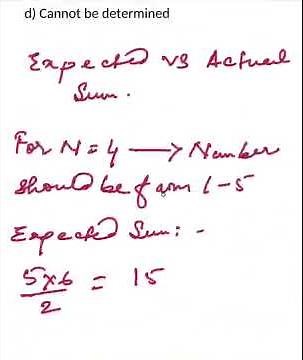 d) Cannot be determined
Expected vs Actual
Sum.
For N=4 → Number
should be from 1-5
Expected Sum: -
5x6 = 15
2